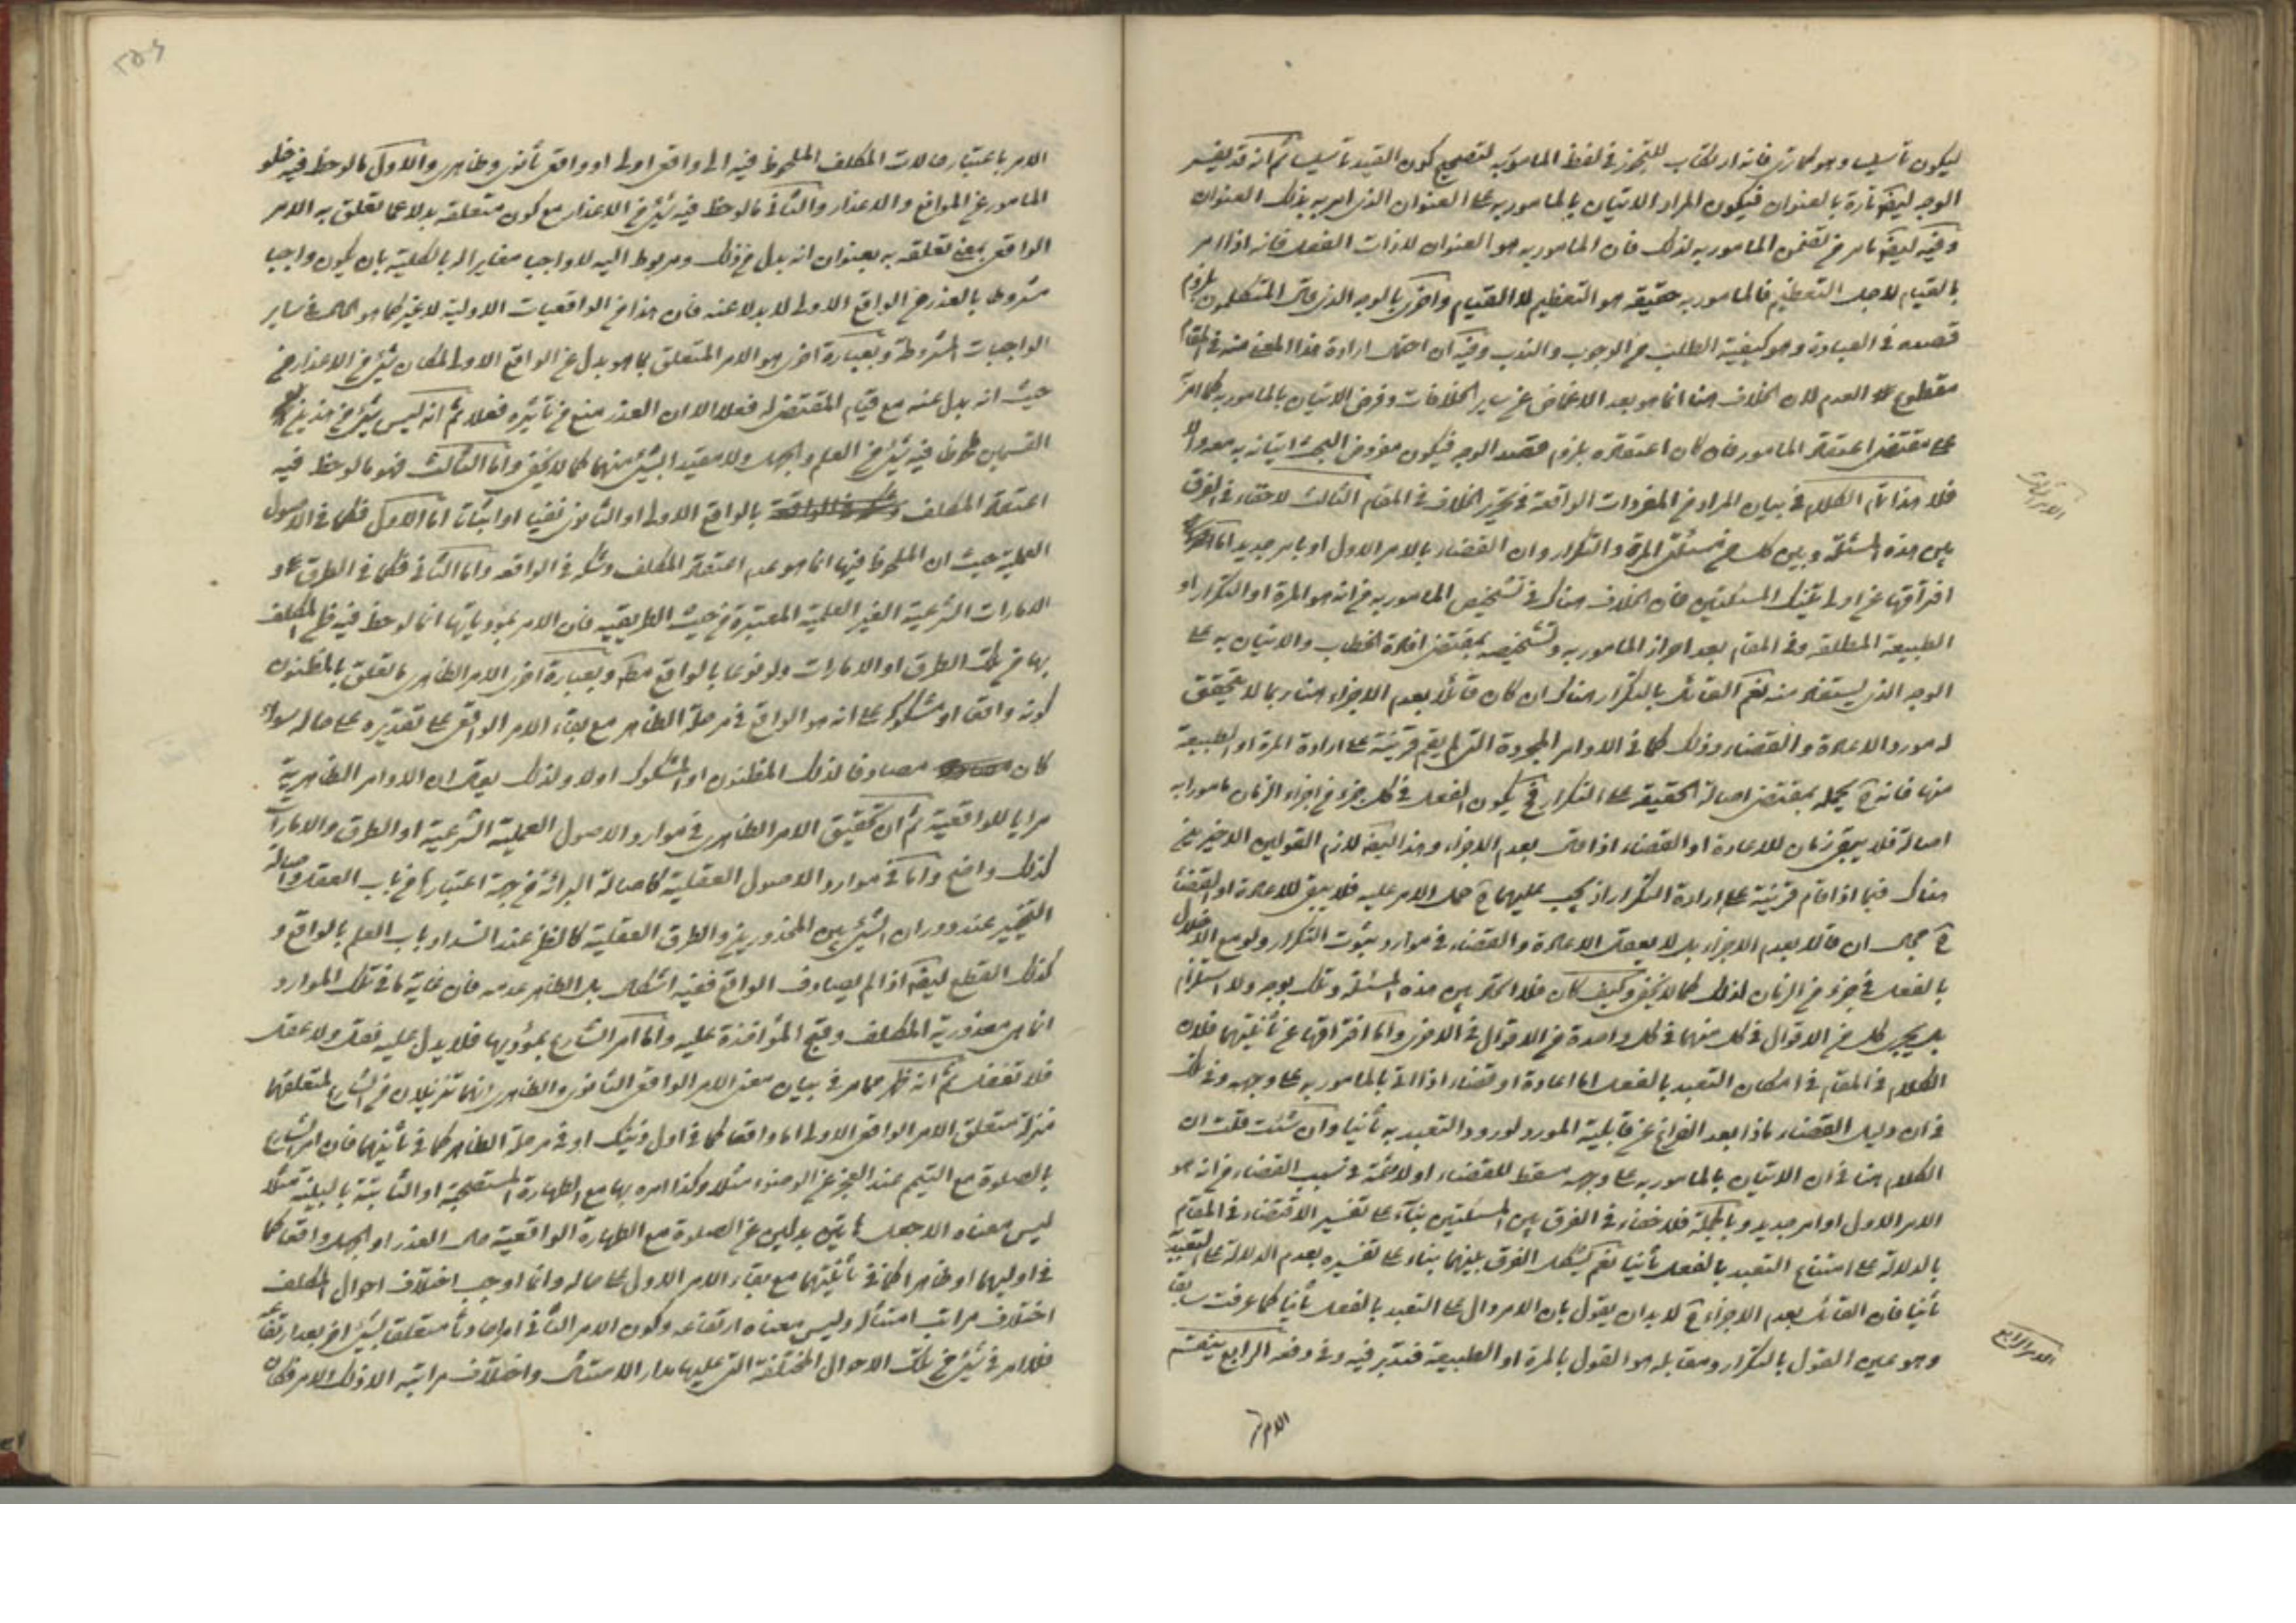 ليكون تأسيسا وهو كما ترى فانه ارتكاب للتجوز فى لفظ المأمور به لتصحيح كون القيد تأسيسا ثم انه قد يفسر
الوجه ليضم تارة بالعنوان فيكون المراد الاتيان بالمأمور به على العنوان الذى امر به بذلك العنوان
وفيه ليضم ما مر من تضمن المأمور به لذلك فان المأمور به هو العنوان لا ذات الفعل فانه اذا امر
بالقيام لاجل التعظيم فالمأمور به حقيقة هو التعظيم لا القيام واخرى بالوجه الذى قال المتكلمون بلزوم
قصده فى العبادة وهو كيفية الطلب من الوجوب والندب وفيه ان احتمال ارادة هذا المعنى منه فى المقام
مقطوع العدم لان الخلاف هنا انما هو بعد الاغماض عن ساير الخلافات وفرض الاتيان بالمأمور به كما امر
على مقتضى اعتقاد المأمور فان كان اعتقاده بلزوم قصد الوجه فيكون مفروض البحث اتيانه به معه والا
فلا هذا تمام الكلام فى بيان المراد من المفردات الواقعة فى تحرير الخلاف فى المقام الثالث لا خفاء فى الفرق
بين هذه المسئلة وبين كل من مسئلتى المرة والتكرار وان القضاء بالامر الاول او بامر جديد اما
افتراقها عن اولى تينك المسئلتين فان الخلاف هناك فى تشخيص المأمور به من انه هو المرة او التكرار او
الطبيعة المطلقة وفى المقام بعد احراز المأمور به وتشخيصه بمقتضى افادة الخطاب والاتيان به على
الوجه الذى يستفاد منه نعم القائل بالتكرار هناك ان كان قائلا بعدم الاجزاء هنا ربما لا يتحقق
له مورد الاعادة والقضاء وذلك كما فى الاوامر المجردة التى لم يقم قرينة على ارادة المرة او الطبيعة
منها فانه ح يحمله بمقتضى اصالة الحقيقة على التكرار فح يكون الفعل فى كل جزء من اجزاء الزمان مأمورا به
اصالة فلا يبقى زمان للاعادة او القضاء اذا قال بعدم الاجزاء وهذا ليضم لازم القولين الاخيرين
هناك فيما اذا قام قرينة على ارادة التكرار اذ يجب عليهما ح حمل الامر عليه فلا يبقى للاعادة او القضاء
ح مجال ان قالا بعدم الاجزاء بل لا يعقل الاعادة والقضاء فى موارد ثبوت التكرار ولو مع الاخلال
بالفعل فى جزء من الزمان لذلك كما لا يخفى وكيف كان فلا اتحاد بين هذه المسئلة وتلك بوجه ولا استلزام
بل يجرى كل من الاقوال فى كل منهما فى كل واحدة من الاقوال فى الاخرى واما افتراقها عن ثانيتهما فلان
الكلام فى المقام فى امكان التعبد بالفعل اما اعادة او قضاء اذا اتى بالمأمور به على وجهه وفى تلك
فى ان دليل القضاء ماذا بعد الفراغ عن قابلية المورد لورود التعبد به ثانيا وان شئت قلت ان
الكلام هنا فى ان الاتيان بالمأمور به على وجهه مسقط للقضاء اولا وثمة فى سبب القضاء من انه هو
الامر الاول او امر جديد وبالجملة فلا خفاء فى الفرق بين المسئلتين بناء على تفسير الاقتضاء فى المقام
بالدلالة على امتناع التعبد بالفعل ثانيا نعم يشكل الفرق بينهما بناء على تفسيره بعدم الدلالة على التعبد
ثانيا فان القائل بعدم الاجزاء ح لا بد ان يقول بان الامر دال على التعبد بالفعل ثانيا كما عرفت سابقا
وهو عين القول بالتكرار ومقابله هو القول بالمرة او الطبيعة فتدبر فيه وفى دفعه الرابع ينقسم
الامر الرابع
الامر
الامر باعتبار حالات المكلف الملحوظة فيه الى واقعى اولى او واقعى ثانوى وظاهرى والاول ما لوحظ فيه خلو
المأمور عن الموانع والاعذار والثانى ما لوحظ فيه شئ من الاعذار مع كون متعلقه بدلا عما تعلق به الامر
الواقعى بمعنى تعلقه به بعنوان انه بدل من ذلك ومربوط اليه لا واجبا مغايرا له بالكلية بان يكون واجبا
مشروطا بالعذر من الواقع الاولى لا بدلا عنه فان هذا من الواقعيات الاولية لا غير كما هو الحال فى ساير
الواجبات المشروطة وبعبارة اخرى هو الامر المتعلق بما هو بدل عن الواقع الاولى لمكان شئ من الاعذار من
حيث انه بدل عنه مع قيام المقتضى له فعلا الا ان العذر منع من تأثيره فعلا ثم انه ليس شئ من هذين
القسمين ملحوظا فيه شئ من العلم والجهل ولا مقيدا بشئ منهما كما لا يخفى واما الثالث فهو ما لوحظ فيه
اعتقاد المكلف بالواقع الاولى او الثانوى نفيا او اثباتا اما الاول فكما فى الاصول
العملية حيث ان الملحوظ فيها انما هو عدم اعتقاد المكلف وشكه فى الواقعة واما الثانى فكما فى الطرق و
الامارات الشرعية الغير العلمية المعتبرة من حيث الطريقية فان الامر بمؤدياتها انما لوحظ فيه ظن المكلف
بها من تلك الطرق او الامارات ولو نوعا بالواقع مطلقا وبعبارة اخرى الامر الظاهرى ما تعلق بالمظنون
كونه واقعا او مشكوكه على انه هو الواقع فى مرحلة الظاهر مع بقاء الامر الواقعى على تقديره على حاله سواء
كان مصادفا لذلك المظنون او المشكوك اولا ولذلك يقال ان الاوامر الظاهرية
مرايا للواقعية ثم ان تحقيق الامر الظاهرى فى موارد الاصول العملية الشرعية او الطرق والامارات
كذلك واضح واما فى موارد الاصول العقلية كاصالة البرائة من جهة اعتبارها من باب العقل واصالة
التخيير عند دوران الشئ بين المحذورين والطرق العقلية كالظن عند انسداد باب العلم بالواقع و
كذلك القطع ليضم اذا لم يصادف الواقع ففيه اشكال بل الظاهر عدمه فان غاية ما فى تلك الموارد
انما هى معذورية المكلف وقبح المؤاخذة عليه واما امر الشارع بمؤديها فلا يدل عليه نقل ولا عقل
فلا تغفل ثم انه ظهر مما مر فى بيان معنى الامر الواقعى الثانوى والظاهرى انهما تنزيلان من الشارع لمتعلقهما
منزلة متعلق الامر الواقعى الاولى اما واقعا كما فى اول ذينك او فى مرحلة الظاهر كما فى ثانيهما فان امر الشارع
بالصلوة مع التيمم عند العجز عن الوضوء مثلا وكذا امره بها مع الطهارة المستصحبة او الثابتة بالبينة مثلا
ليس معناه الا جعل هاتين بدلين عن الصلوة مع الطهارة الواقعية حال العذر او الجهل واقعا كما
فى اوليهما او ظاهرا كما فى ثانيتهما مع بقاء الامر الاول على حاله وانما اوجب اختلاف احوال المكلف
اختلاف مراتب امتثاله وليس معناه ارتفاعه وكون الامر الثانى امرا حادثا متعلقا بشئ اخر بعد ارتفاعه
فلا امر فى شئ من تلك الاحوال المختلفة التى عليها مدار الامتثال واختلاف مراتبه الا ذلك الامر فكان